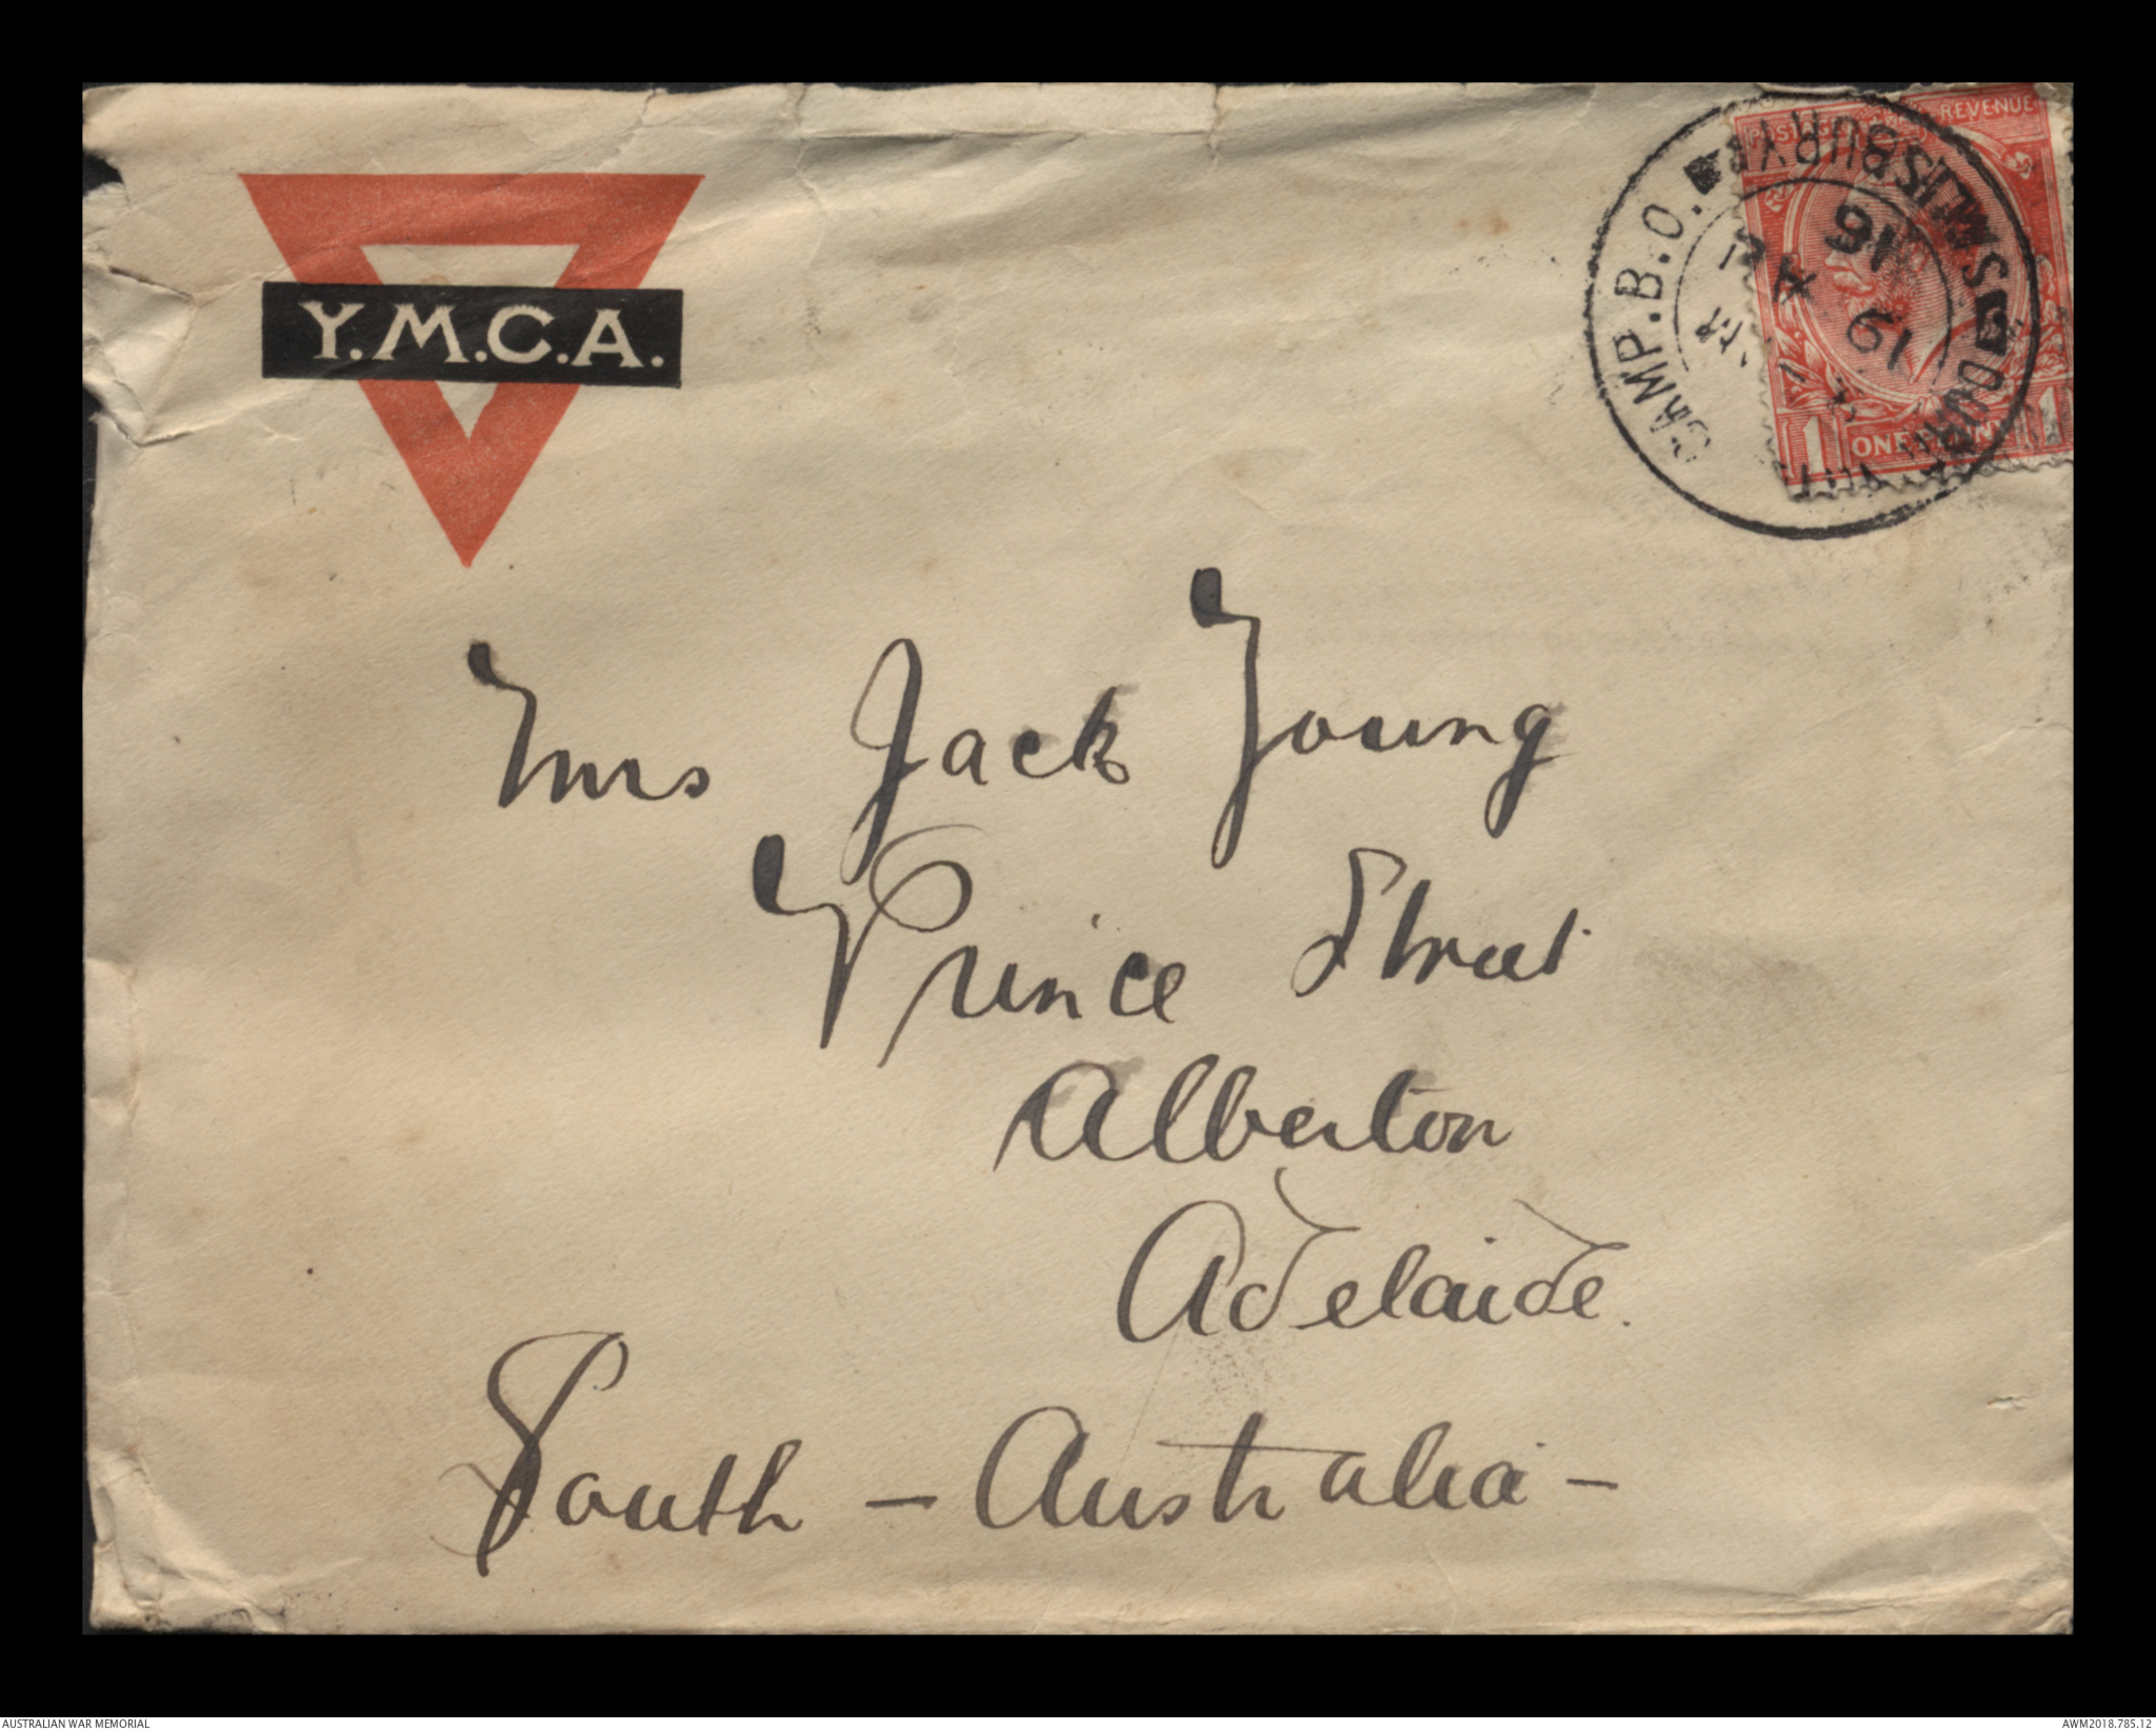 Y.M.C.A.
POSTAGE REVENUE
ONE PENNY
1 1
CAMP.B.O. SALISBURY
16
19
Mrs Jack Young
Prince Street
Alberton
Adelaide.
South - Australia -
AUSTRALIAN WAR MEMORIAL
AWM2018.785.12